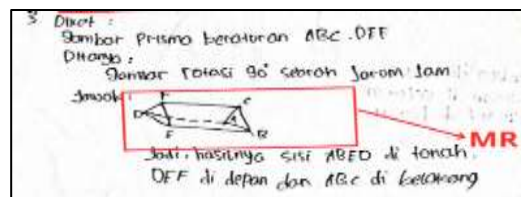 3. Diket :
Gambar Prisma beraturan ABC.DEF
Ditanya :
Gambar rotasi 90° searah Jarum Jam
Jawab :
F
C
D
A
E
B
MR
Jadi, hasilnya sisi ABED di tanah.
DEF di depan dan ABC di belakang